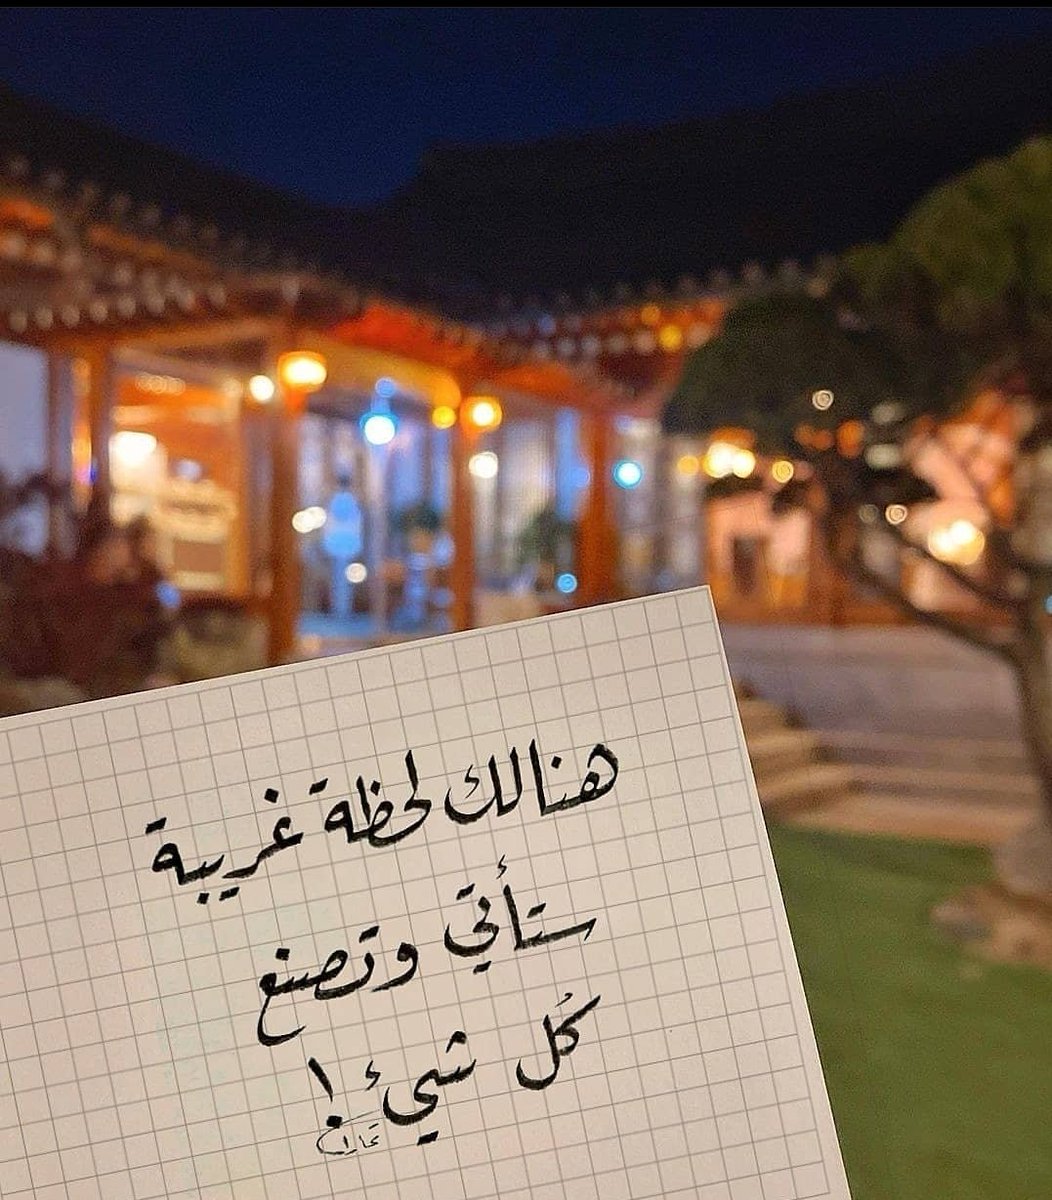 هنالك لحظة غريبة
ستأتي وتصنع
كُل شيء !